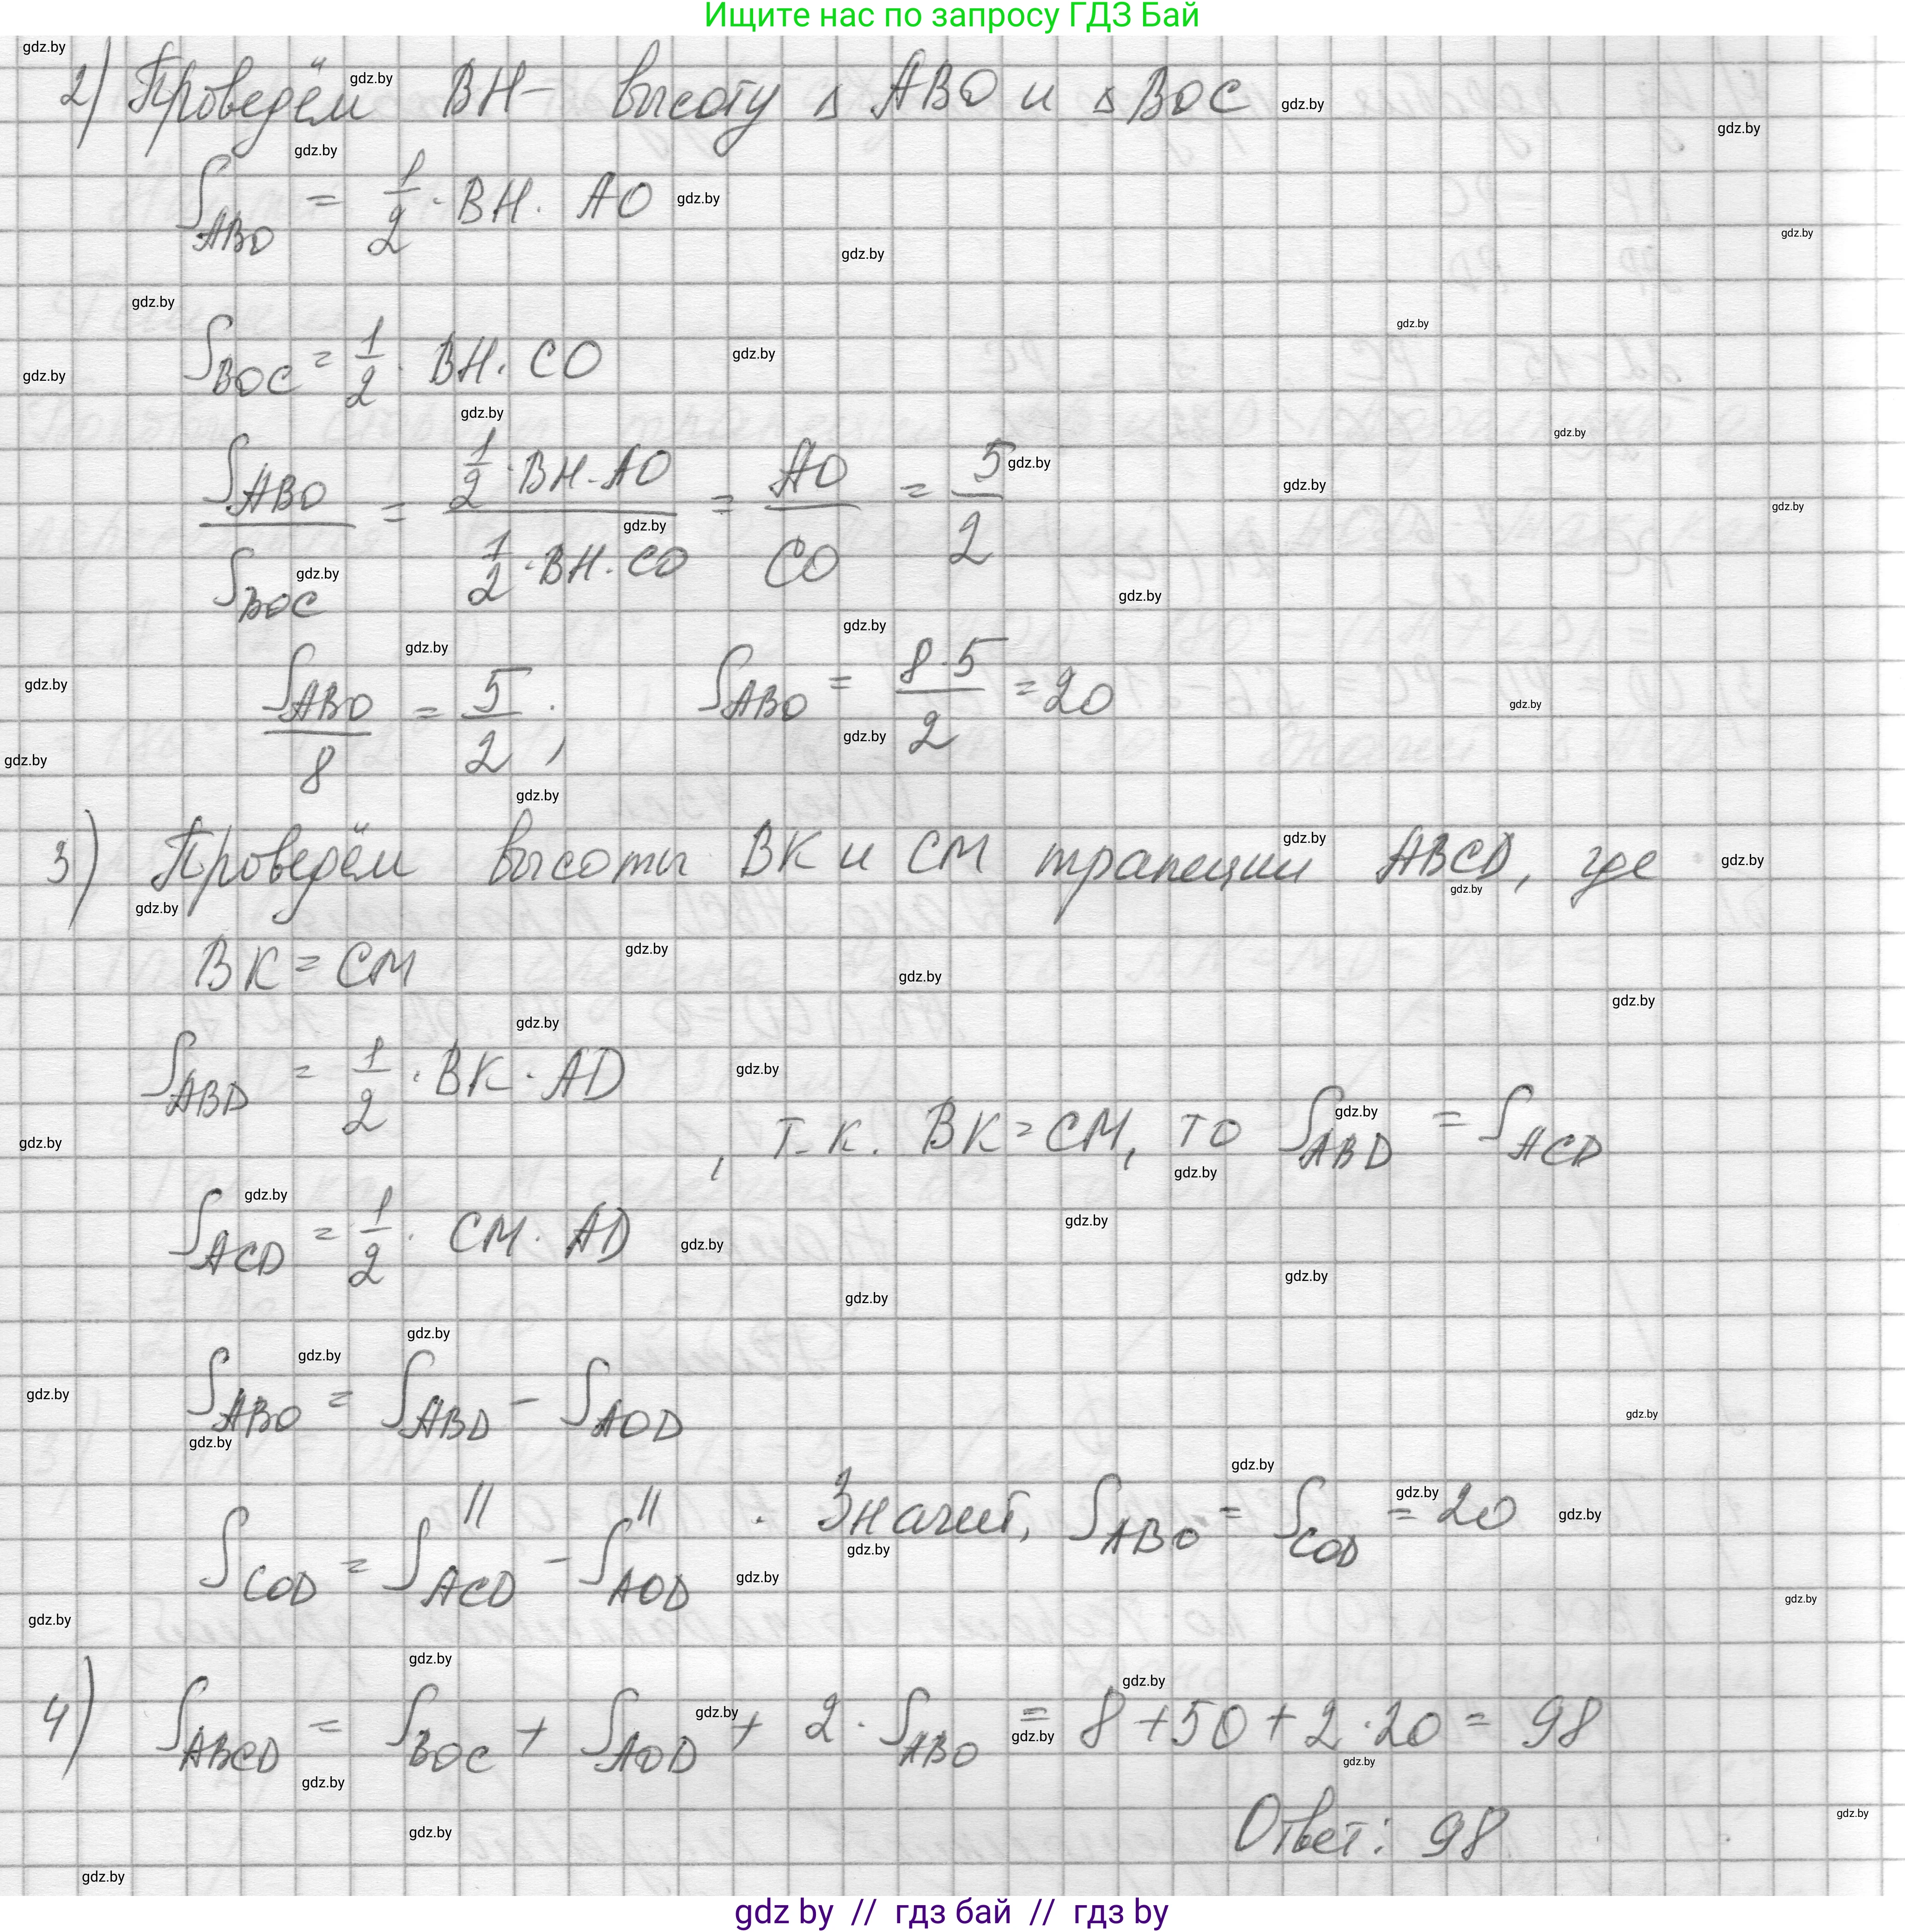 Ищите нас по запросу ГДЗ Бай
2) Проведём BH – высоту △ ABO и △ BOC
S_ABO = 1/2 · BH · AO
S_BOC = 1/2 · BH · CO
S_ABO / S_BOC = (1/2 · BH · AO) / (1/2 · BH · CO) = AO / CO = 5/2
S_ABO / 8 = 5/2 ; S_ABO = (8 · 5) / 2 = 20
3) Проведём высоты BK и CM трапеции ABCD, где
BK = CM
S_ABD = 1/2 · BK · AD
, т.к. BK = CM, то S_ABD = S_ACD
S_ACD = 1/2 · CM · AD
S_ABO = S_ABD – S_AOD
|| ||
S_COD = S_ACD – S_AOD . Значит, S_ABO = S_COD = 20
4) S_ABCD = S_BOC + S_AOD + 2 · S_ABO = 8 + 50 + 2 · 20 = 98
Ответ: 98
gdz by // гдз бай // гдз by